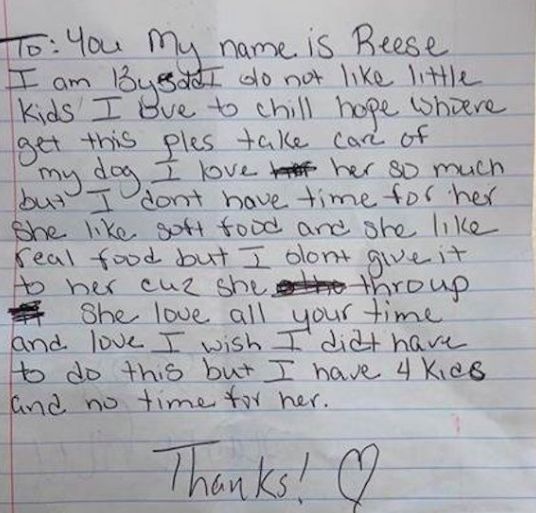 To: You My name is Reese
I am 13ysold I do not like little
kids I love to chill hope whoere
get this ples take care of
my dog I love her so much
but I dont have time for her
She like soft food and she like
real food but I dont give it
to her cuz she throup
She love all your time
and love I wish I didt have
to do this but I have 4 kids
and no time for her.
Thanks! ♡